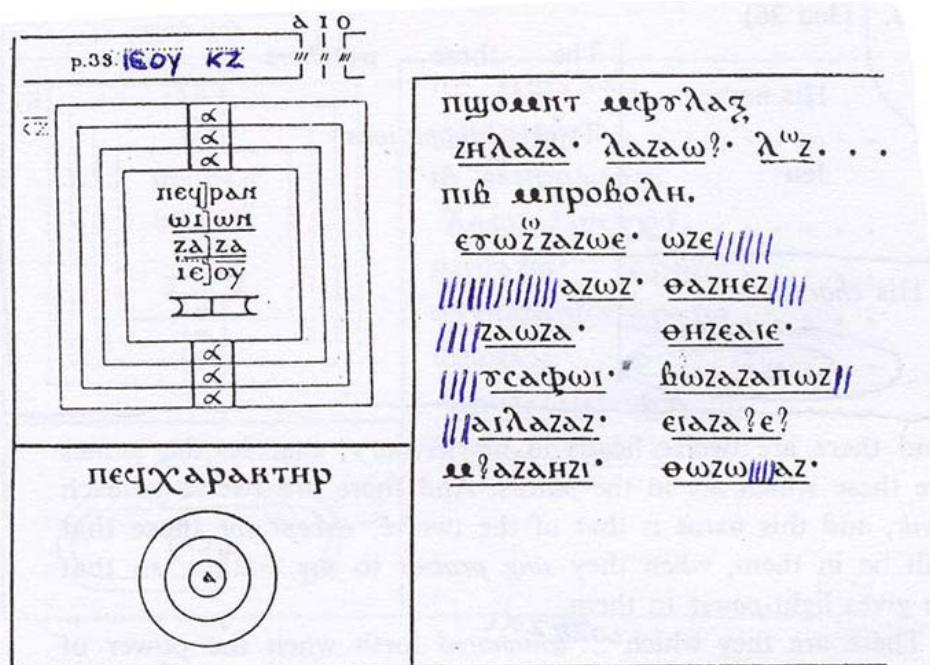 ⲁ ⲓ ⲟ
p.38. ⲓⲉⲟⲩ ⲕⲍ
ⲁ
ⲁ
ⲁ
ⲡⲉϥ]ⲣⲁⲛ
ⲱⲓ]ⲱⲏ
ⲍⲁ]ⲍⲁ
ⲓⲉ]ⲟⲩ
ⲁ
ⲁ
ⲁ
ⲡⲉϥⲭⲁⲣⲁⲕⲧⲏⲣ
ⲁ
ⲡϣⲟⲙⲛⲧ ⲙⲫⲩⲗⲁⲝ
ⲍⲏⲗⲁⲍⲁ· ⲗⲁⲍⲁⲱ?· ⲗⲱⲍ· · ·
ⲡⲓⲃ ⲙⲡⲣⲟⲃⲟⲗⲏ.
ⲉⲩⲱⲍⲱⲍⲁⲍⲱⲉ· ⲱⲍⲉ//////
////////////ⲁⲍⲱⲍ· ⲑⲁⲍⲏⲉⲍ////
////ⲍⲁⲱⲍⲁ· ⲑⲏⲍⲉⲁⲓⲉ·
////ⲩⲥⲁⲫⲱⲓ· ⲃⲱⲍⲁⲍⲁⲡⲱⲍ//
///ⲁⲓⲗⲁⲍⲁⲍ· ⲉⲓⲁⲍⲁ?ⲉ?
ⲙ?ⲁⲍⲁⲏⲍⲓ· ⲑⲱⲍⲱ////ⲁⲍ·